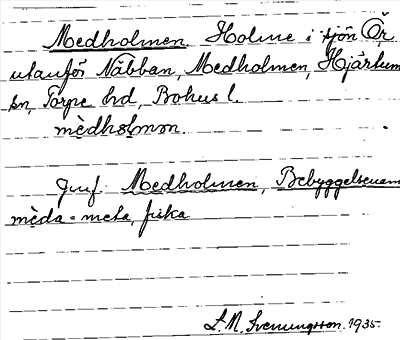 Medholmen. Holme i sjön Ör,
utanför Näbban, Medholmen, Hjärtum
sn, Torpe hd, Bohus l.
mèdhɔlmən.
Jmf. Medholmen, Bebyggelsenamn
mèda = meta, fiska
L.M. Svenungsson. 1935.